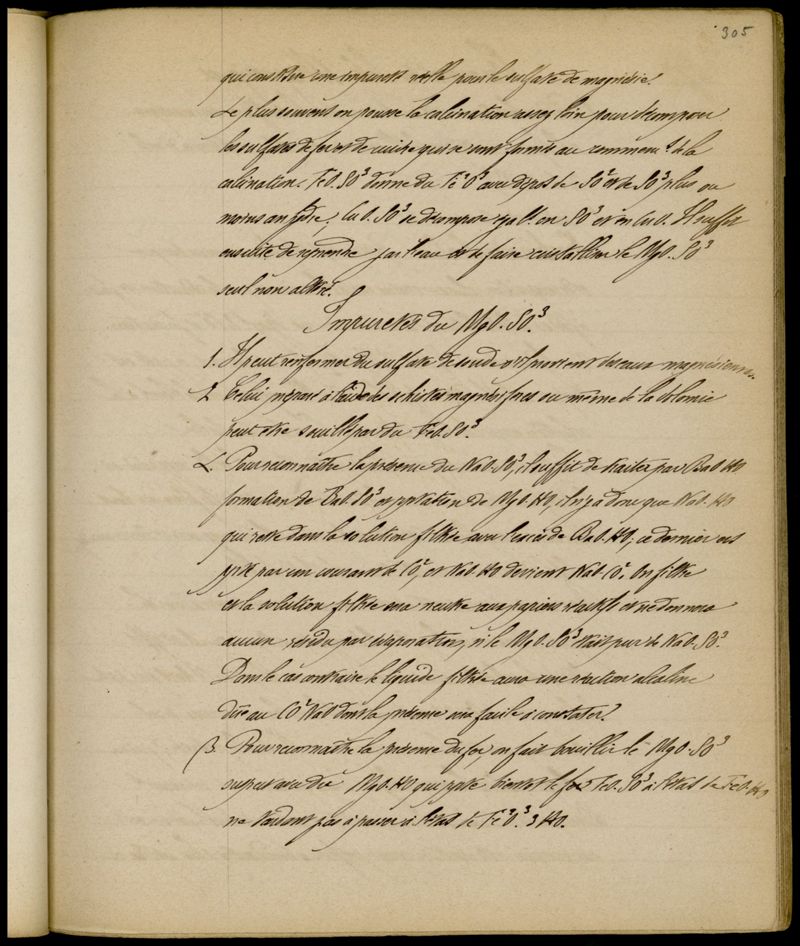 305
qui constitue une impureté réelle pour le sulfate de magnésie.
Le plus souvent on pousse la calcination assez loin pour décomposer
les sulfates de fer et de cuivre qui se sont formés au commenct de la
calcination. FeO.SO³ donne du Fe²O³ avec dépôt de SO² et de SO³ plus ou
moins anhydre. CuO.SO³ se décompose en SO³ et en CuO. Il suffit
ensuite de reprendre par l'eau et de faire cristalliser le MgO.SO³
seul non altéré.
Impuretés du MgO.SO³.
1. Il peut renfermer du sulfate de soude s'il provient des eaux magnésiennes
2. Celui préparé à l'aide des schistes magnésifères ou même de la dolomie
peut être souillé par du FeO.SO³.
α. Pour reconnaître la présence du NaO.SO³, il suffit de traiter par BaO.HO
formation de BaO.SO³ et pptation de MgO.HO, il n'y a donc que NaO.HO
qui reste dans la solution filtrée avec l'excès de BaO.HO; ce dernier est
ppté par un courant de CO², et NaO.HO devient NaO.CO². On filtre
et la solution filtrée sera neutre aux papiers réactifs et ne donnera
aucun résidu par évaporation, si le MgO.SO³ était pur de NaO.SO³.
Dans le cas contraire le liquide filtré aura une réaction alcaline
due au CO²NaO dont la présence sera facile à constater.
β. Pour reconnaître la présence du fer, on fait bouillir le MgO.SO³
suspect avec du MgO.HO qui ppte bientôt le FeO.SO³ à l'état de FeO.HO
ne tardant pas à passer à l'état de Fe²O³.3HO.